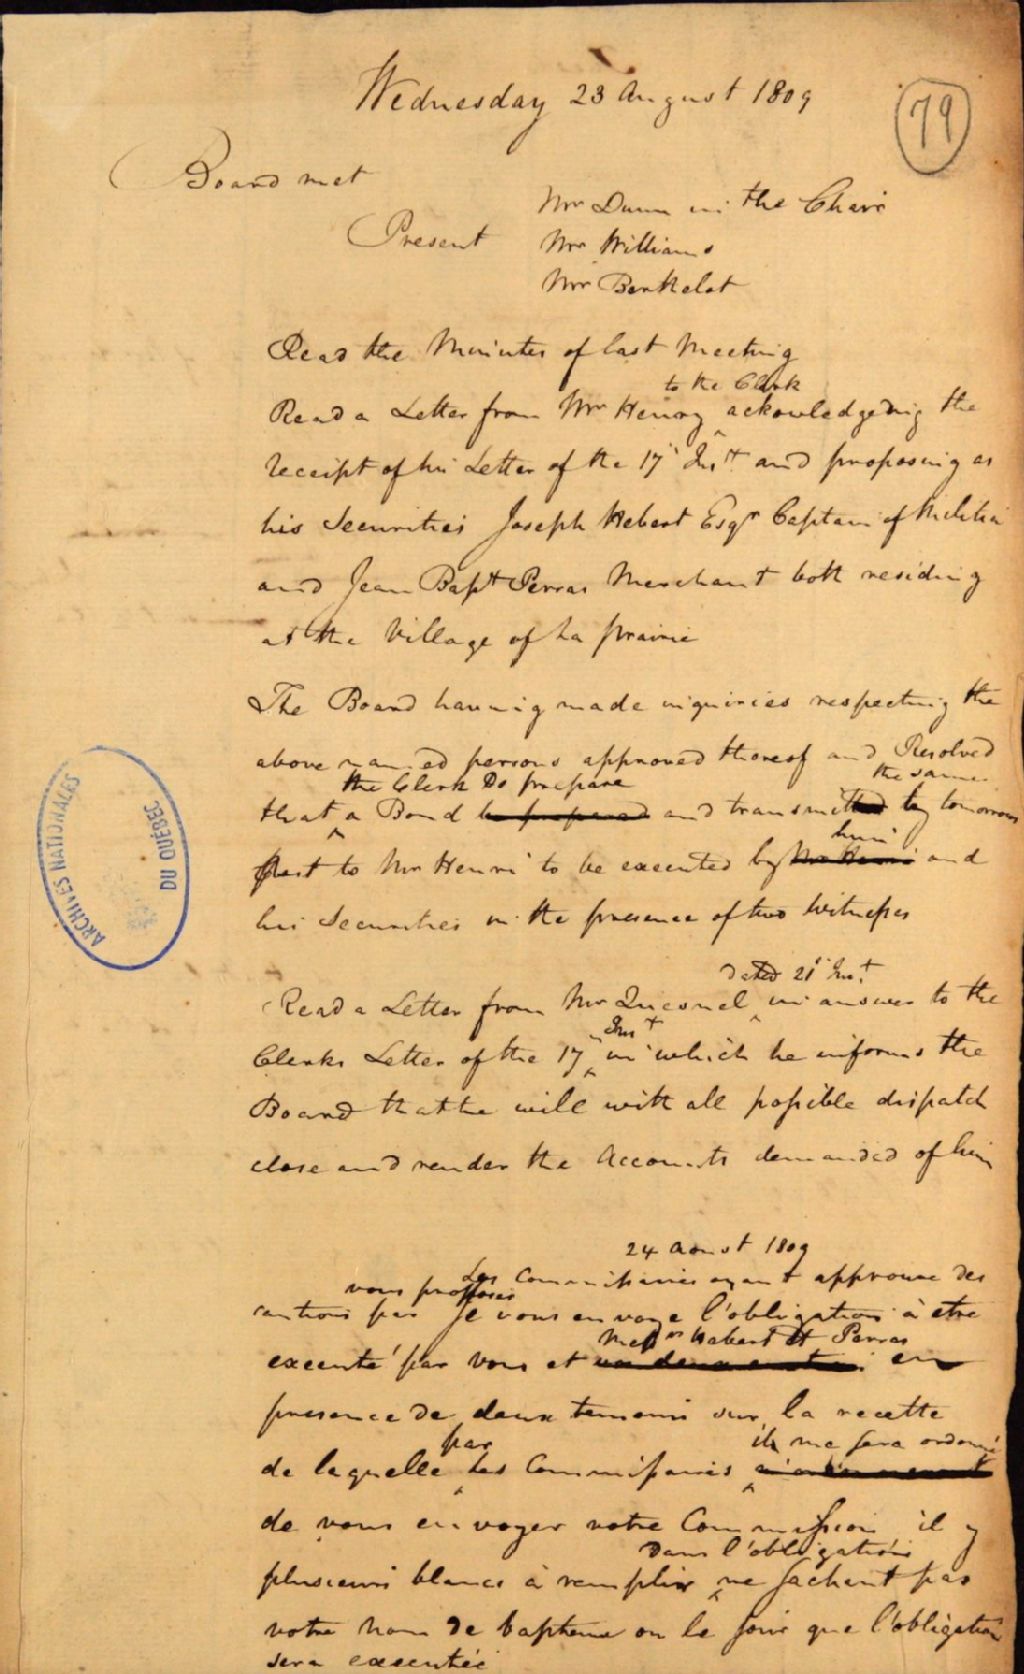 Wednesday 23 August 1809
79
Board met
Mr Dunn in the Chair
Present Mr Williams
Mr Berthelot
Read the Minutes of last Meeting
to the Clerk
Read a Letter from Mr Henry ackowledgeding the
receipt of his Letter of the 17 Inst and proposing as
his Securities Joseph Hebert Esqr Captain of Militia
and Jean Bapt Perras Merchant both residing
at the Village of La prairie
The Board having made inquiries respecting the
above named persons approved thereof and Resolved
the Clerk Do prepare the same
that a Bond be prepared and transmitted by tomorrows
him
post to Mr Henri to be executed by Mr Henri and
his Securities in the presence of two Witnesses
dated 21 Inst
Read a Letter from Mr Quesnel in answer to the
Inst
Clerks Letter of the 17 in which he informs the
Board that he will with all possible dispatch
close and render the Accounts demanded of him
24 Aoust 1809
Les Commissaires ayant approuve des
vous proposes
cautions par je vous envoye l'obligation à etre
Messrs Hebert et Perras
executé par vous et en
presence de deux temoins sur la recette
par il me sera ordonné
de laquelle Les Commissaires
de vous envoyer votre Commission il y
dans l'obligation
plusieurs blancs à remplir ne sachant pas
votre nom de bapteme ou le jour que l'obligation
sera executée
ARCHIVES NATIONALES
DU QUÉBEC